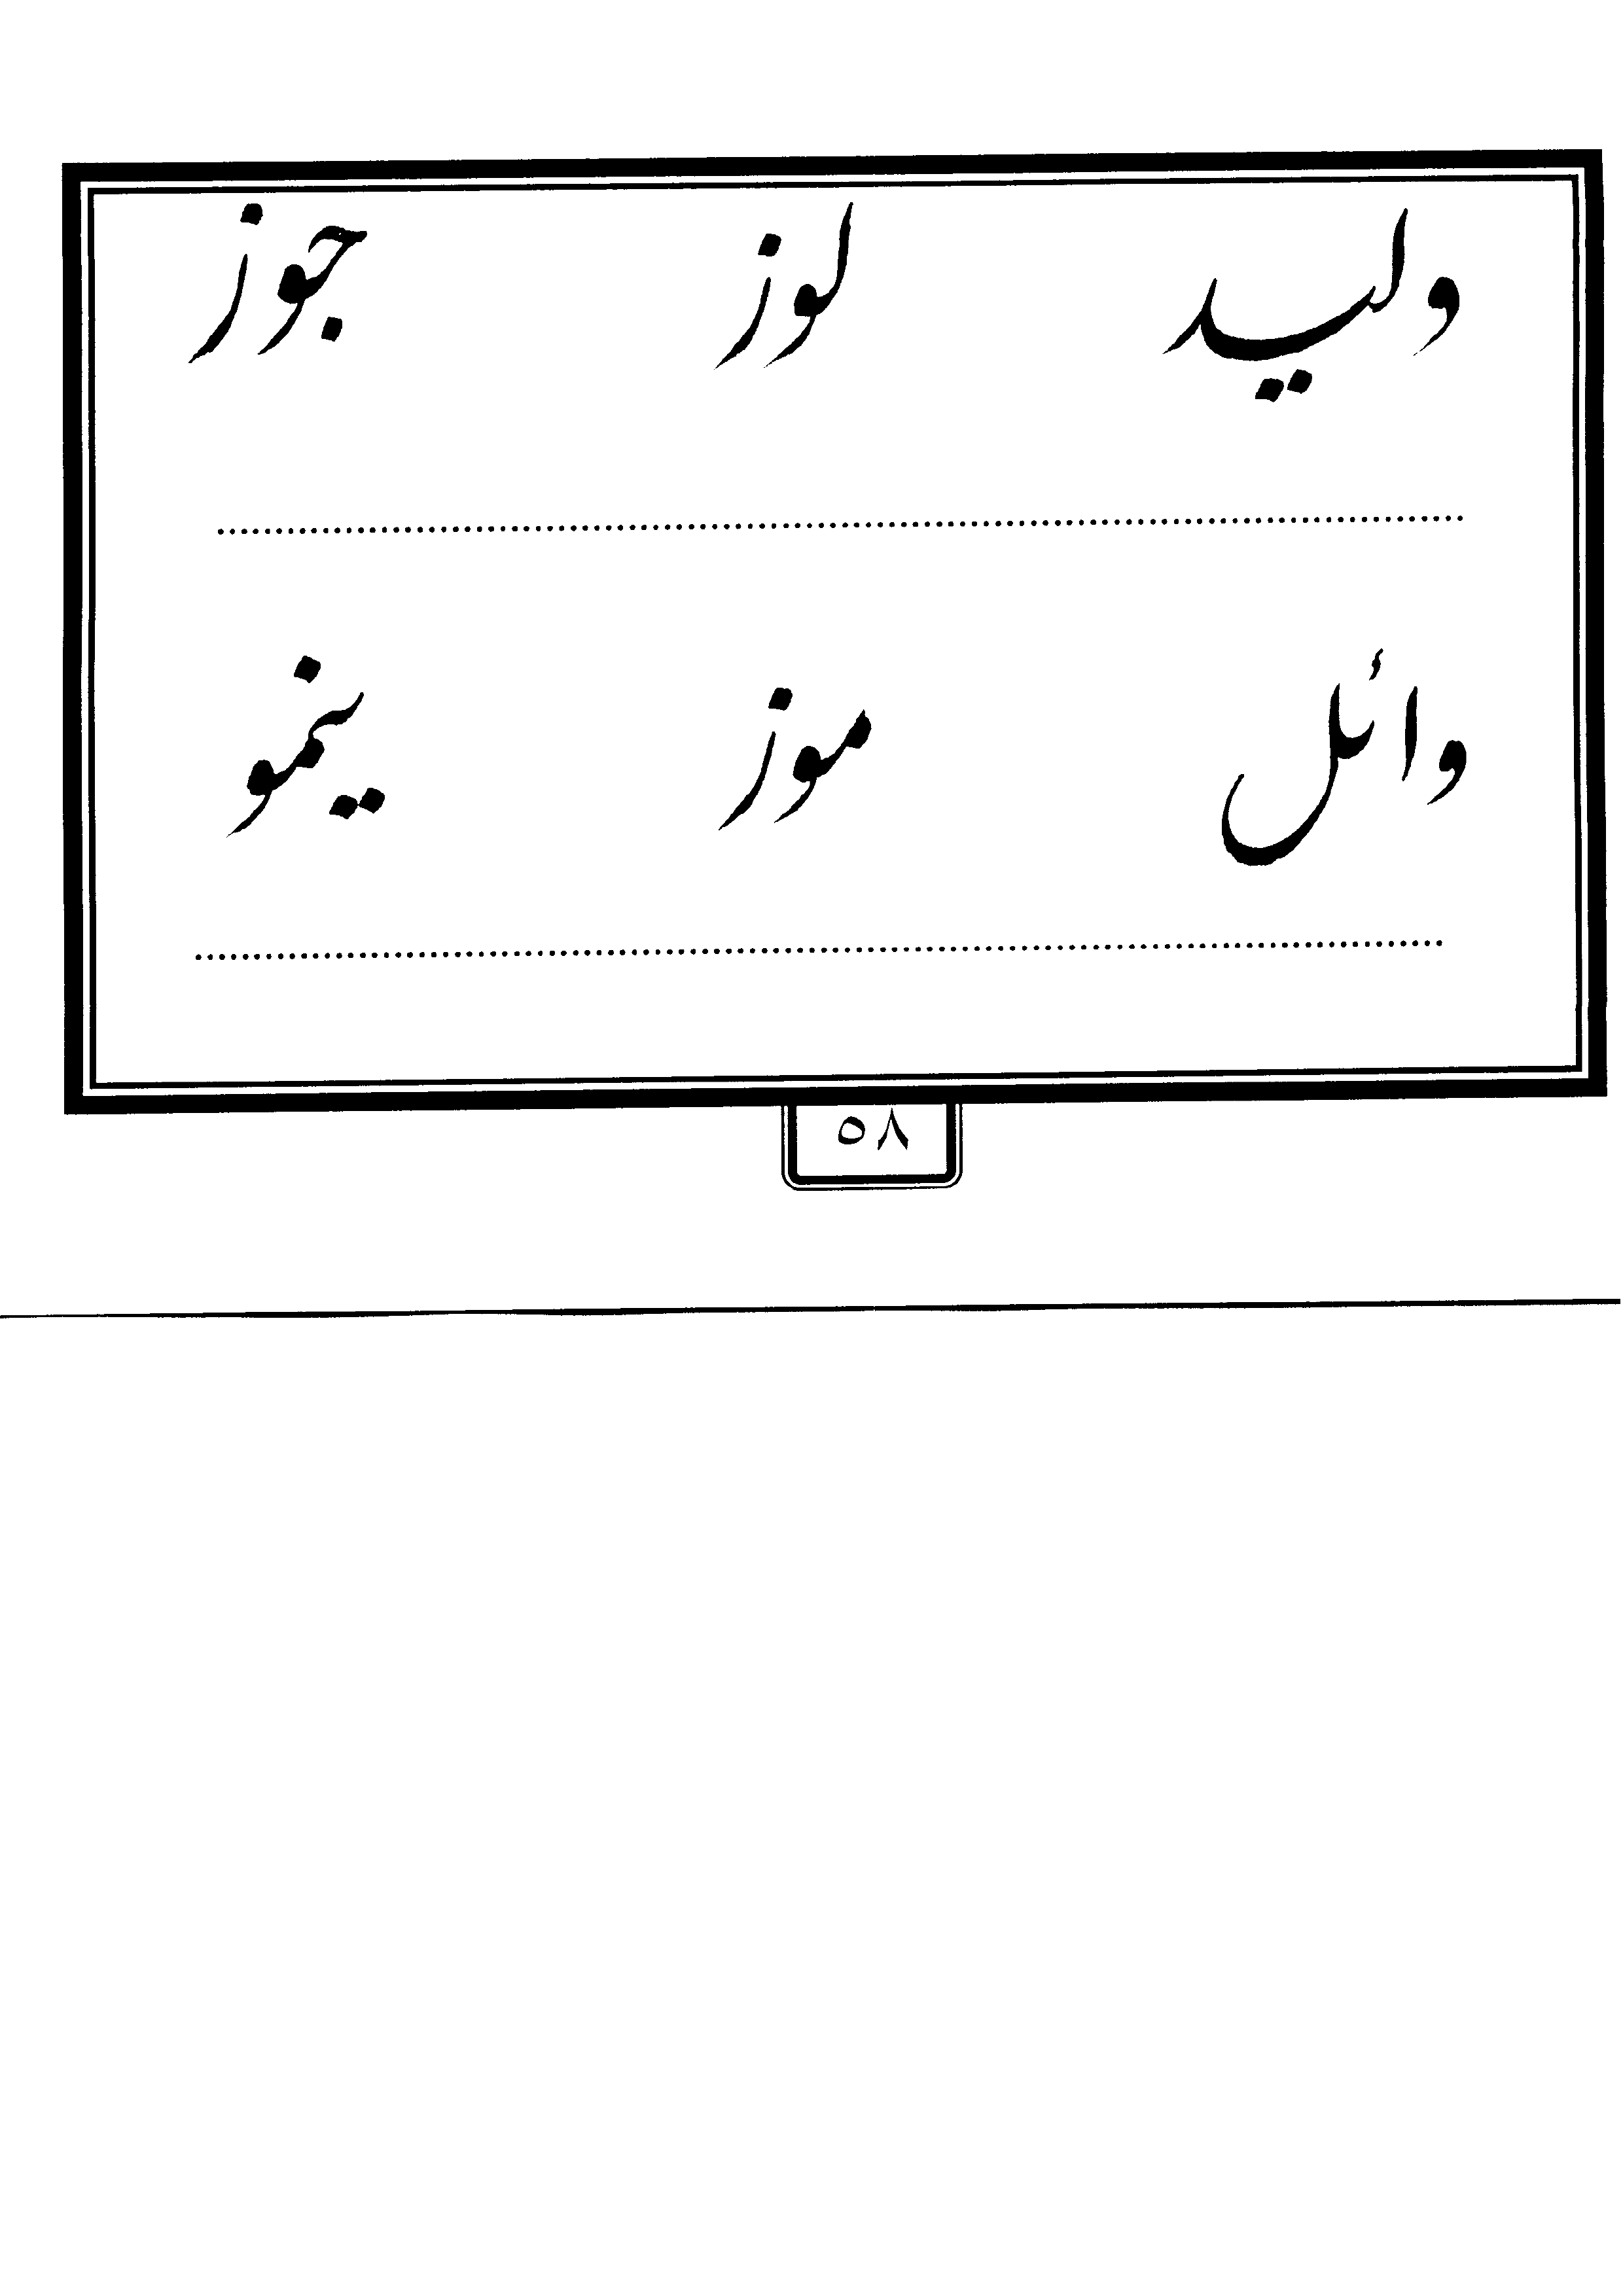 وليد لوز جوز
وائل موز ينمو
٥٨